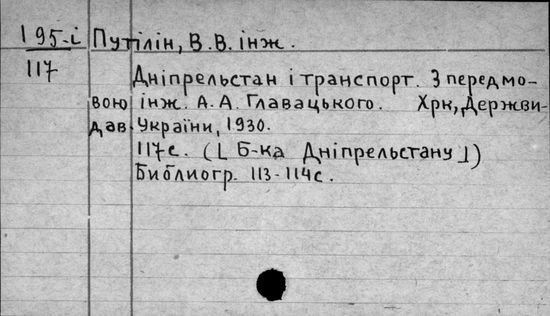 195-і Путілін, В.В. інж.
117
Дніпрельстан і транспорт. З передмо-
вою інж. А.А. Главацького. Хрк, Держви-
дав України, 1930.
117с. (⌊ Б-ка Дніпрельстану ⌋)
Библиогр. 113-114с.